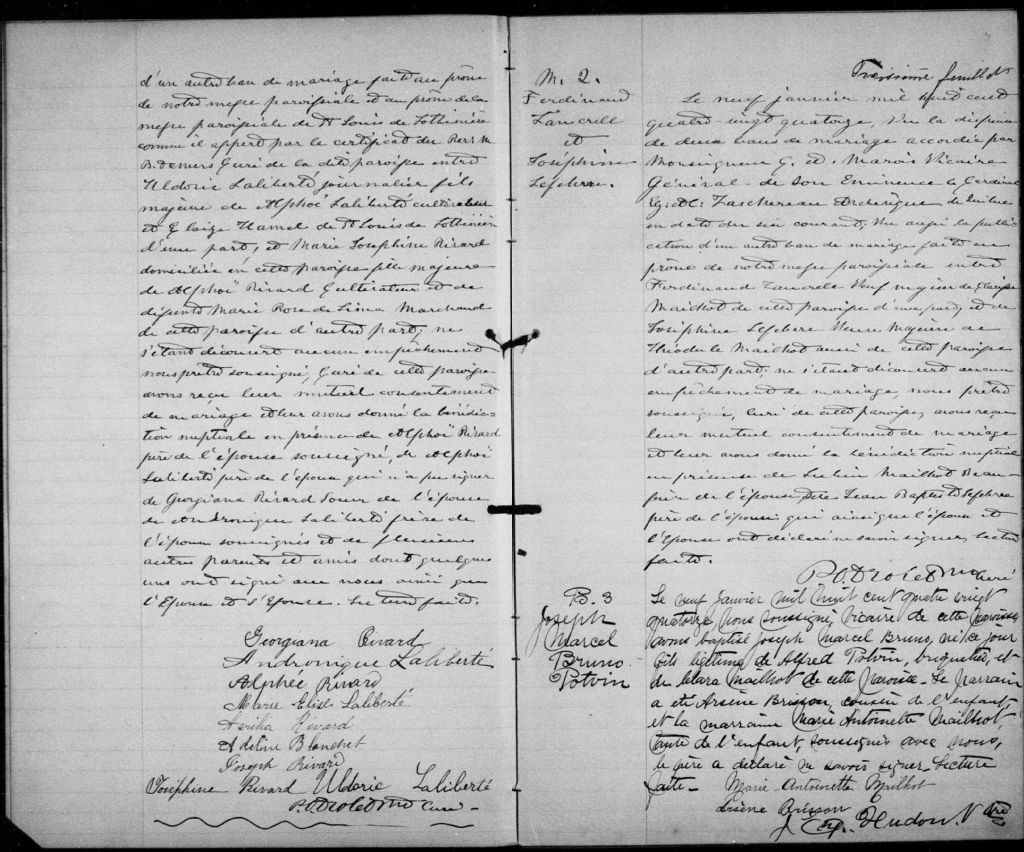 d'un autre ban de mariage faite au prône
de notre messe paroissiale et au prône de la
messe paroissiale de St Louis de Lotbinière
comme il appert par le certificat du Rev. M
B. Demers Curé de la dite paroisse entre
Uldoric Laliberté journalier fils
majeur de Alphoï Laliberté cultivateur
et Eloïze Hamel de St Louis de Lotbinière
d'une part, et Marie Josephine Rivard
domiciliée en cette paroisse fille majeure
de Alphoï Rivard Cultivateur et de
défunte Marie Rose de Lima Marchand
de cette paroisse d'autre part, ne
s'étant découvert aucun empêchement
nous prêtre soussigné, Curé de cette paroisse
avons reçu leur mutuel consentement
de mariage et leur avons donné la bénédic-
tion nuptiale en présence de Alphoï Rivard
père de l'épouse soussigné, de Alphoï
Laliberté père de l'époux qui n'a pu signer
de Georgiana Rivard Soeur de l'épouse
de Andronique Laliberté frère de
l'époux soussignés et de plusieurs
autres parents et amis dont quelques
uns ont signé avec nous ainsi que
l'Epoux et l'Epouse. Lecture faite.
Georgiana Rivard
Andronique Laliberté
Alphée Rivard
Marie Elise Laliberté
Rivard
Adeline Blanchet
Joseph Rivard
Joséphine Rivard Uldoric Laliberté
P.O. Drolet Ptre Curé
M. 2.
Ferdinand
Lancrelle
et
Joséphine
Lefebvre.
Troisième feuillet
Le neuf janvier mil huit cent
quatre-vingt quatorze, Vu la dispense
de deux bans de mariage accordée par
Monsigneur C. et. Marois Vicaire
Général de Son Eminence le Cardinal
Eg. Al. Taschereau Archevêque de Québec
en date du six courant; Vu aussi la publi-
cation d'un autre ban de mariage faite au
prône de notre messe paroissiale entre
Ferdinand Veuf majeur de
Mailhot de cette paroisse d'une part; et de
Joséphine Lefebvre Veuve Majeure de
Théodule Mailhot aussi de cette paroisse
d'autre part; ne s'étant découvert aucun
empêchement de mariage, nous prêtre
soussigné, Curé de cette paroisse, avons reçu
leur mutuel consentement de mariage
et leur avons donné la bénédiction nuptiale
en présence de Mailhot Beau-
frère de l'Epouse et de Jean Baptiste Lefebvre
père de l'épouse qui ainsi que l'époux et
l'Epouse ont déclaré ne savoir signer, lecture
faite.
P.O. Drolet Ptre Curé
B. 3
Joseph
Marcel
Bruno
Potvin
Le neuf Janvier mil huit cent quatre vingt
quatorze, nous soussigné, vicaire de cette paroisse
avons baptisé Joseph Marcel Bruno, né ce jour
fils légitime de Alfred Potvin, briquetier, et
de Clara Mailhot de cette paroisse. Le parrain
a été Arsène Brisson, cousin de l'enfant,
et la marraine Marie Antoinette Mailhot,
tante de l'enfant, soussignés avec nous,
le père a déclaré ne savoir signer. Lecture
faite. Marie Antoinette Mailhot
Arsène Brisson
J. Hudon. V. Ptre